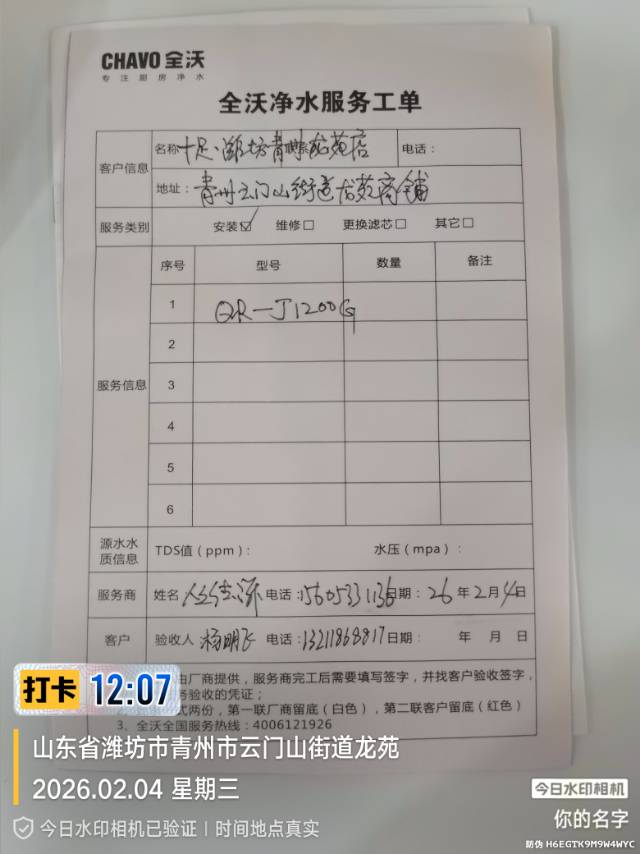 CHAVO 全沃
专注厨房净水
全沃净水服务工单
客户信息
名称 十足·潍坊青州龙苑店
电话：
地址：青州云门山街道龙苑商铺
服务类别 安装☑ 维修□ 更换滤芯□ 其它□
服务信息
序号 型号 数量 备注
1 QR-J1200G
2
3
4
5
6
源水水质信息 TDS值（ppm）： 水压（mpa）：
服务商 姓名 电话： 日期：26年2月4日
客户 验收人 杨明飞 电话：13211868817 日期： 年 月 日
由厂商提供，服务商完工后需要填写签字，并找客户验收签字，
务验收的凭证；
式两份，第一联厂商留底（白色），第二联客户留底（红色）
3、全沃全国服务热线：4006121926
打卡 12:07
山东省潍坊市青州市云门山街道龙苑
2026.02.04 星期三
今日水印相机已验证 | 时间地点真实
今日水印相机
你的名字
防伪 H6EGTK9M9W4WYC